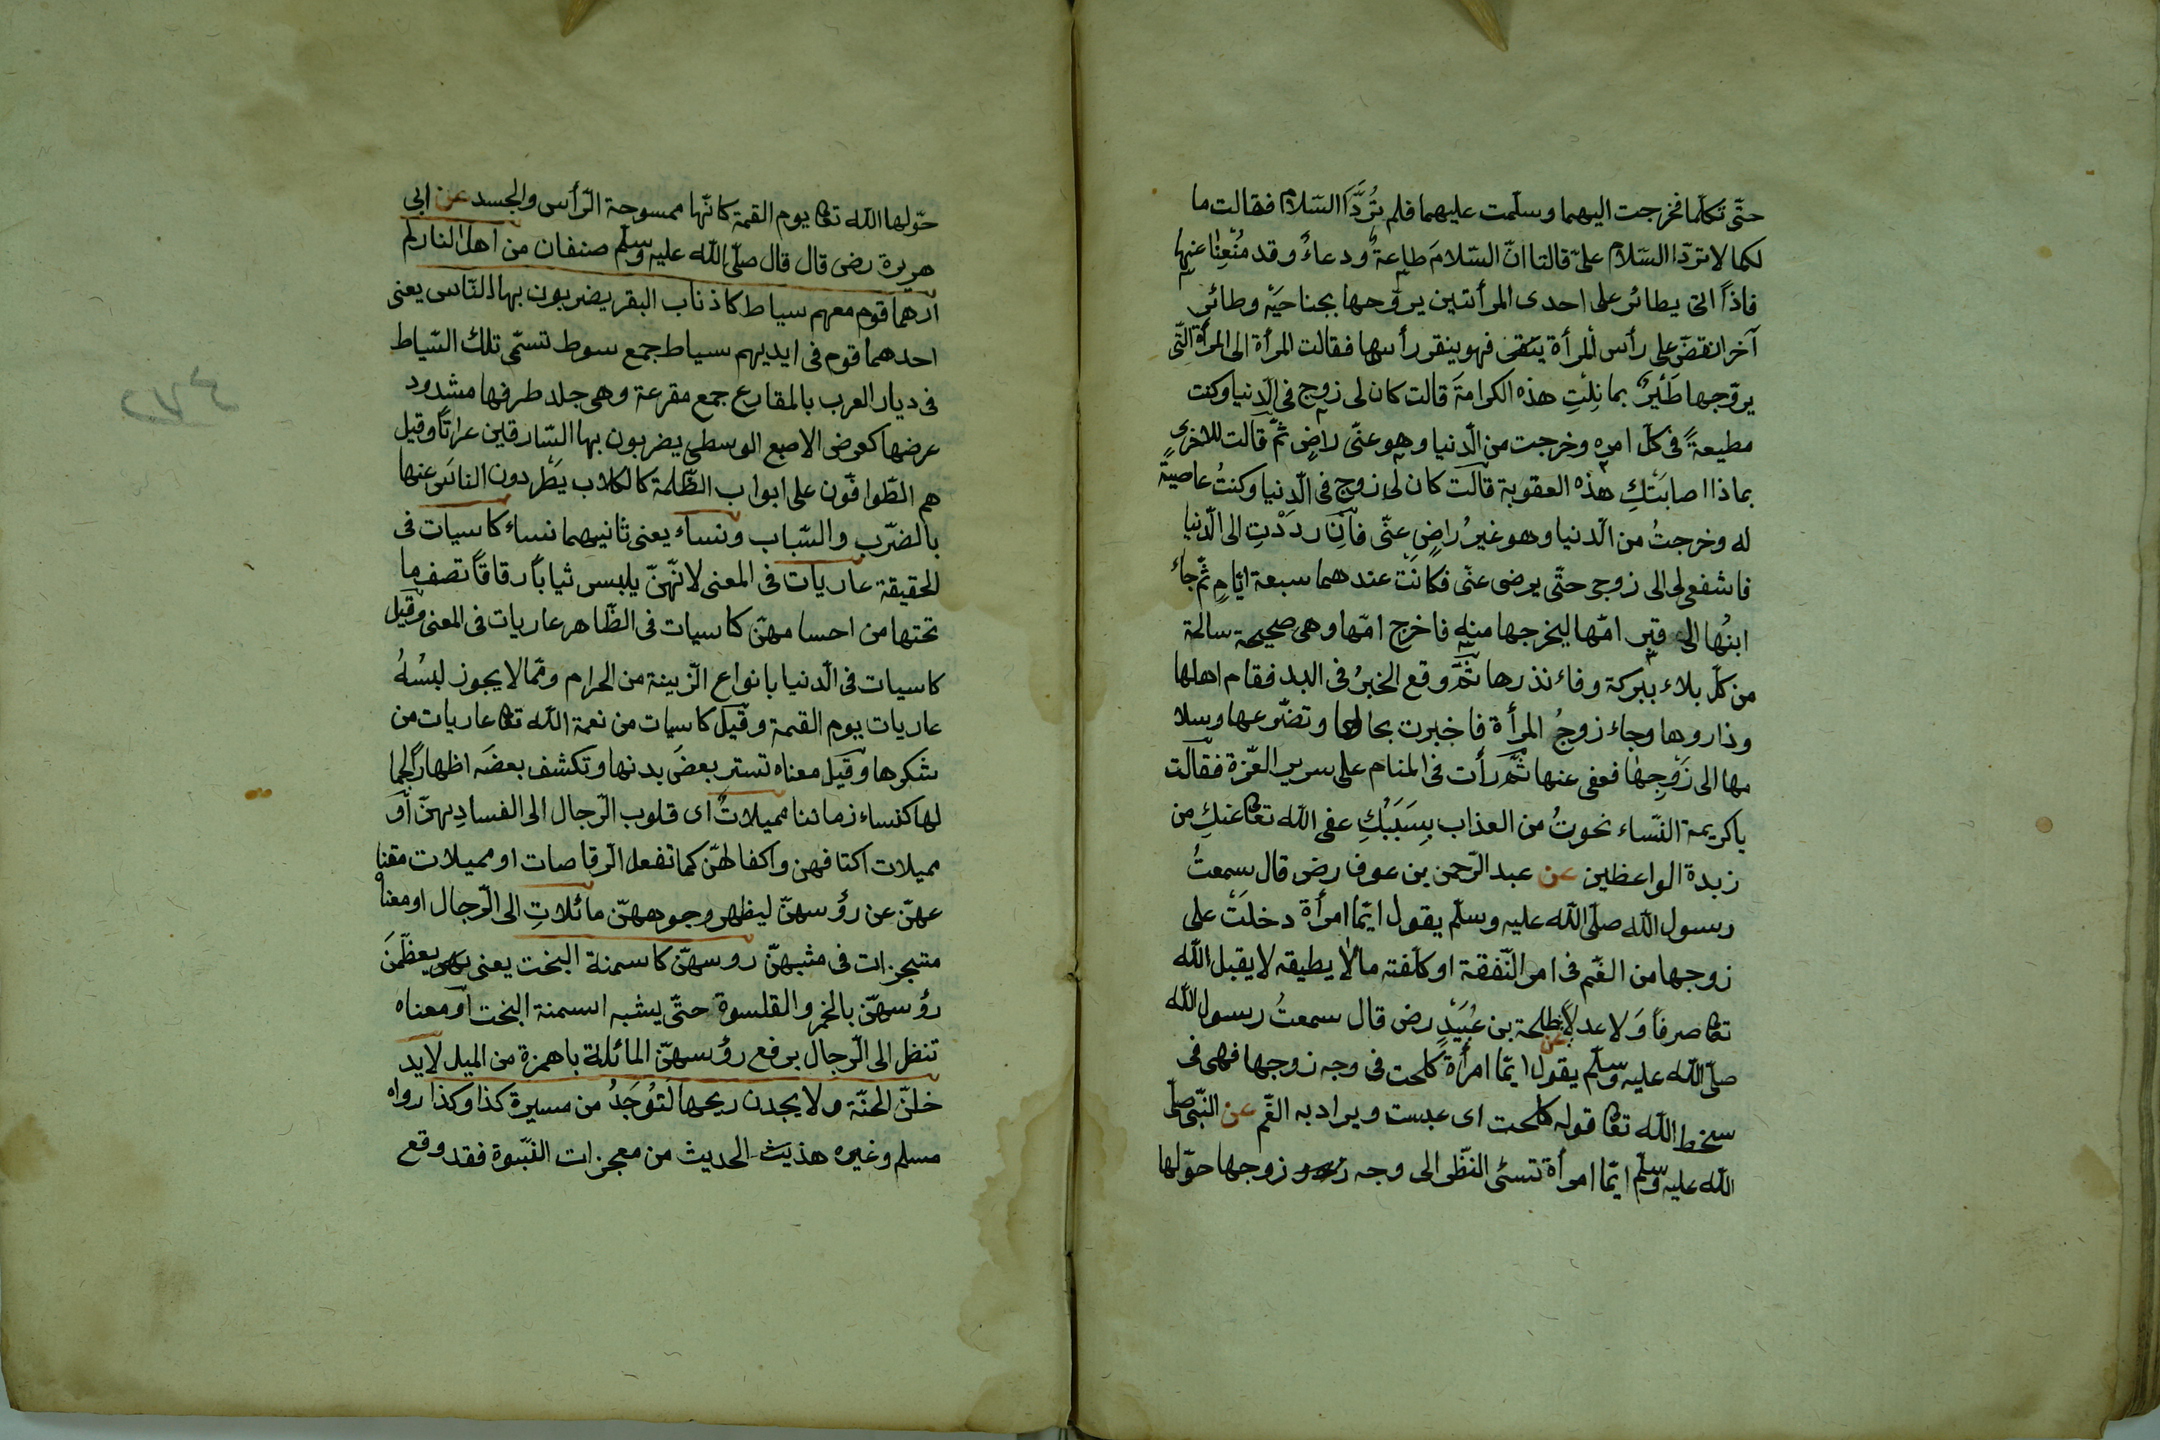 حتّى تكلّما فخرجت اليهما وسلّمت عليهما فلم يَرُدّا السّلام فقالت ما
لكما لا تردّا السّلام علىّ قالتا انّ السّلامَ طاعةٌ ودعاءٌ وقد مُنْعِنٰا عنها
فاذاً اتى يطائر على احدى المرأتين يروّحها بجناحَيْه وطائر
آخر انقضّ على رأس المرأة يتقى فهو ينقر رأسها فقالت المرأة الى المرأة الّتى
يروّحها طَيْرٌ بما نِلْتِ هذه الكرامةَ قالت كان لى زوج فى الّدنيا وكنت
مطيعةً فى كلّ امره وخرجت من الّدنيا وهو عنّى راضٍ ثمّ قالت للاخرى
بماذا اصابَتْكِ هذه العقوبة قالت كان لى زوج فى الّدنيا وكنتُ عاصيةً
له وخرجتُ من الّدنيا وهو غيرُ راضٍ عنّى فاِنْ ردَدْتِ الى الّدنيا
فاشفعى لى الى زوجى حتّى يرضى عنّى فكانَتْ عندهما سبعة ايّامٍ ثمّ جاء
ابنُها الى قبر امّها ليخرجها منه فاخرج امّها وهى صحيحة سالمة
من كلّ بلاء ببركة وفاء نذرها ثمّ وقع الخبرُ فى البلد فقام اهلها
وذاروها وجاء زوجُ المرأة فاخبرت بحالها وتضّرعها وسلا
مها الى زَوْجِهٰا فعفى عنها ثمّ رأت فى المنام على سرير العزّة فقالت
ياكريمة النّساء نجوتُ من العذاب بِسَبَبُكِ عفى اللّه تعالى عنكِ من
زبدة الواعظين عن عبد الرّحمن بن عوف رض قال سمعتُ
رسول اللّه صلّى اللّه عليه وسلّم يقول ايّما امرأة دخلَتْ على
زوجها من الغّم فى امر النّفقة او كلّفته ما لا يطيقه لا يقبل اللّه
تعالى صرفاً وَلا عدلاً عن طلحة بن عُبَيْدٍ رض قال سمعتُ رسول اللّه
صلّى اللّه عليه وسلّم يقول ايّما امرأة كلحت فى وجه زوجها فهى فى
سخط اللّه تعالى قوله كلحت اى عبست ويراد به الغّم عن النّبى صلّى
اللّه عليه وسلّم ايّما امرأة تسئى النظّر الى وجه زوجها حوّلها
حوّلها اللّه تعالى يوم القيمة كانّها ممسوحة الرّأس والجسد عن ابى
هريرة رضى قال قال صلّى اللّه عليه وسلّم صنفان من اهل النار لم
ارهما قوم معهم سياط كاذناب البقر يضربون بها النّاس يعنى
احدهما قوم فى ايديهم سياط جمع سوط تسمّى تلك السّياط
فى ديار العرب بالمقارع جمع مقرعة وهى جلد طرفها مشدود
عرضها كعرض الاصبع الوسطى يضربون بها السّارقين عراتاً وقيل
هم الطّوافّون على ابواب الظّلمة كالكلاب يَطْردون الناسَ عنها
بالضّرب والسّباب ونساء يعنى ثانيهما نساء كاسيات فى
الحقيقة عاريات فى المعنى لانّهنّ يلبس ثياباً رقاقاً تصف ما
تحتها من احسامهنّ كاسيات فى الظّاهر عاريات فى المعنى وقيل
كاسيات فى الّدنيا بانواع الزّينة من الحرام وممّا لا يجوز لبسُهُ
عاريات يوم القيمة وقيل كاسيات من نعمة اللّه تعالى عاريات من
شكرها وقيل معناه تستر بعضَ بدنها وتكشف بعضَه اظهاراً لجما
لها كنساء زماننا مميلاتٌ اى قلوب الرّجال الى الفسادِ بهنّ أو
مميلات اكتافهن واكفالهنّ كما تفعل الرقاصات او مميلات مقنا
عهنّ عن رؤسهنّ ليظهر وجوههنّ مائلاتِ الى الرّجال او معناه
متبجزات فى مشيهنّ روسهنّ كاسمنة البخت يعنى يعظّمنَ
رؤسهنّ بالخمر والقلسوة حتّى يشبه اسمنة البخت أو معناه
تنظر الى الرّجال برفع رؤسهنّ المائلة باهمزة من الميل لا يد
خلنّ الجنّة ولا يجدن ريحها لَتُوْجَدُ من مسيرة كذا وكذا رواه
مسلم وغيره هذيث الحديث من معجزات النّبوة فقد وقع